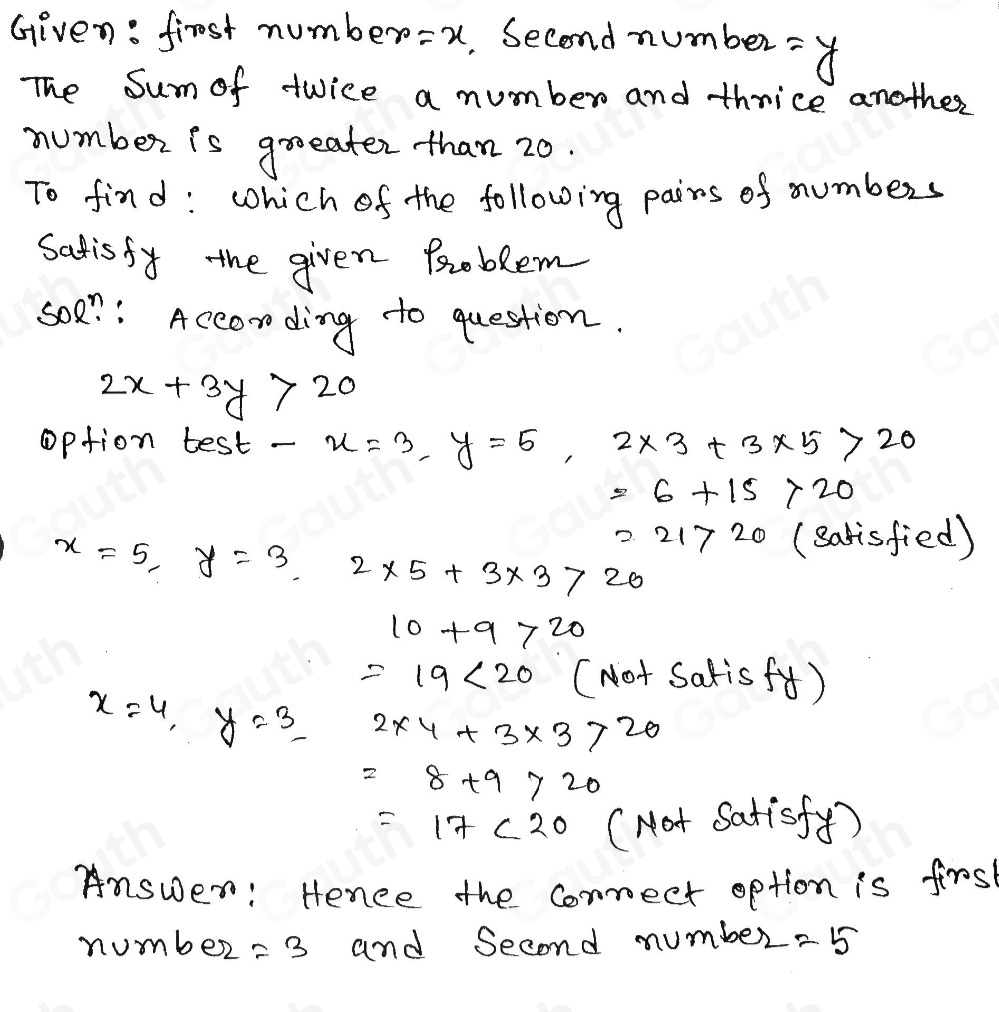 Given: first number = x, Second number = y
The Sum of twice a number and thrice another
number is greater than 20.
To find: which of the following pairs of numbers
Satisfy the given Problem
Solⁿ: According to question.
2x + 3y > 20
Option test - x = 3, y = 5, 2 × 3 + 3 × 5 > 20
= 6 + 15 > 20
= 21 > 20 (Satisfied)
x = 5, y = 3, 2 × 5 + 3 × 3 > 20
10 + 9 > 20
= 19 < 20 (Not Satisfy)
x = 4, y = 3 2 × 4 + 3 × 3 > 20
= 8 + 9 > 20
= 17 < 20 (Not Satisfy)
Answer: Hence the correct option is first
number = 3 and Second number = 5